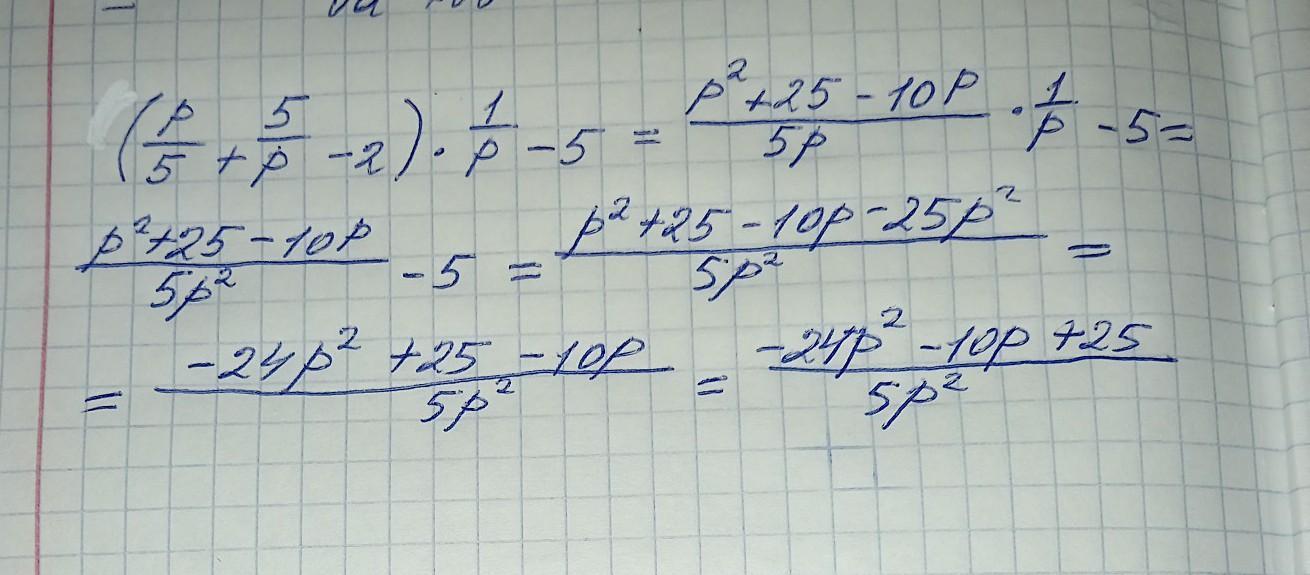 (p/5 + 5/p - 2) · 1/p - 5 = (p² + 25 - 10p)/5p · 1/p - 5 =
(p² + 25 - 10p)/5p² - 5 = (p² + 25 - 10p - 25p²)/5p² =
= (-24p² + 25 - 10p)/5p² = (-24p² - 10p + 25)/5p²